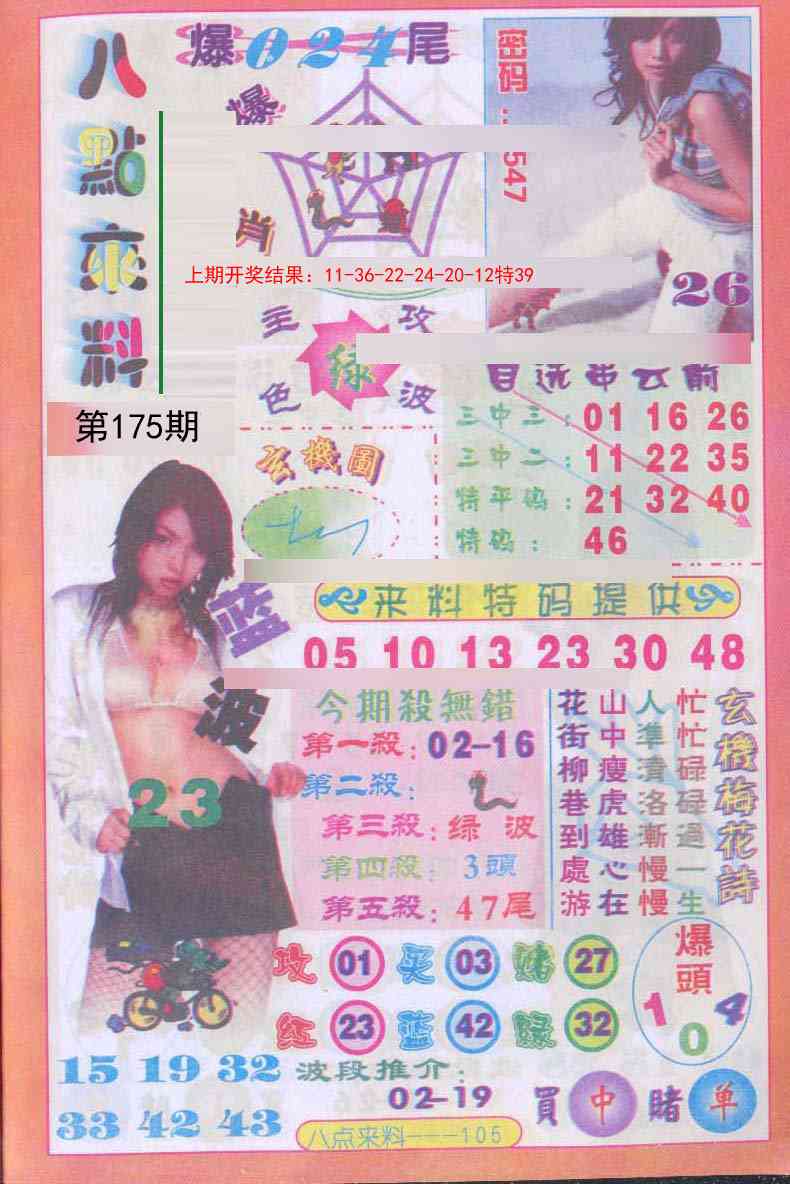 八點來料
爆024尾
爆
肖
密码
547
26
上期开奖结果：11-36-22-24-20-12特39
主攻
绿
色波
第175期
自选
三中三：01 16 26
三中二：11 22 35
特平码：21 32 40
特码：46
玄機圖
来料特码提供
05 10 13 23 30 48
蓝
波
23
今期殺無錯
第一殺：02-16
第二殺：
第三殺：绿波
第四殺：3頭
第五殺：47尾
玄機梅花詩
忙忙碌碌過一生
人準清洛漸慢慢
山中瘦虎雄心在
花街柳巷到處游
攻 01 买 03 赌 27
红 23 蓝 42 绿 32
爆頭
1 0 4
15 19 32
33 42 43
波段推介：
02-19
買中賭单
八点来料---105